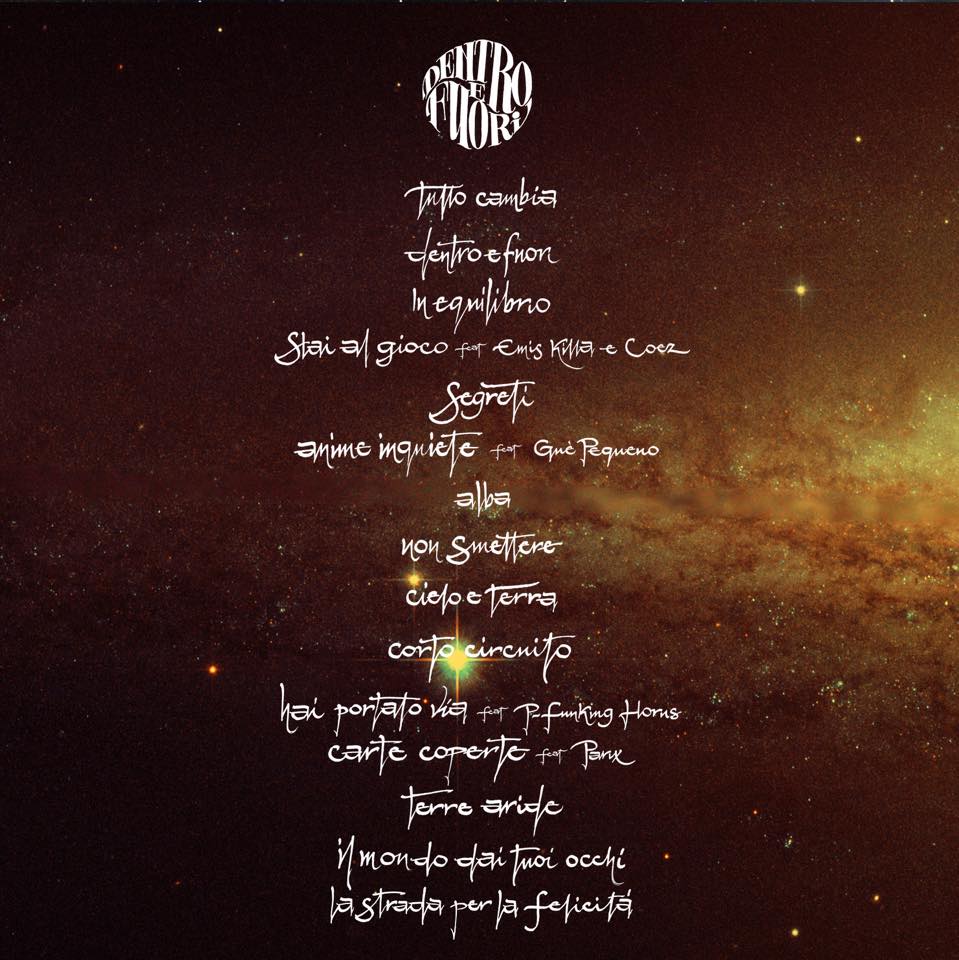 DENTRO
E
FUORI
tutto cambia
dentro e fuori
In equilibrio
Stai al gioco feat Emis Killa e Coez
Segreti
anime inquiete feat Guè Pequeno
alba
non smettere
cielo e terra
corto circuito
hai portato via feat P-Funking Horns
carte coperte feat Panx
terre aride
il mondo dai tuoi occhi
la strada per la felicitá